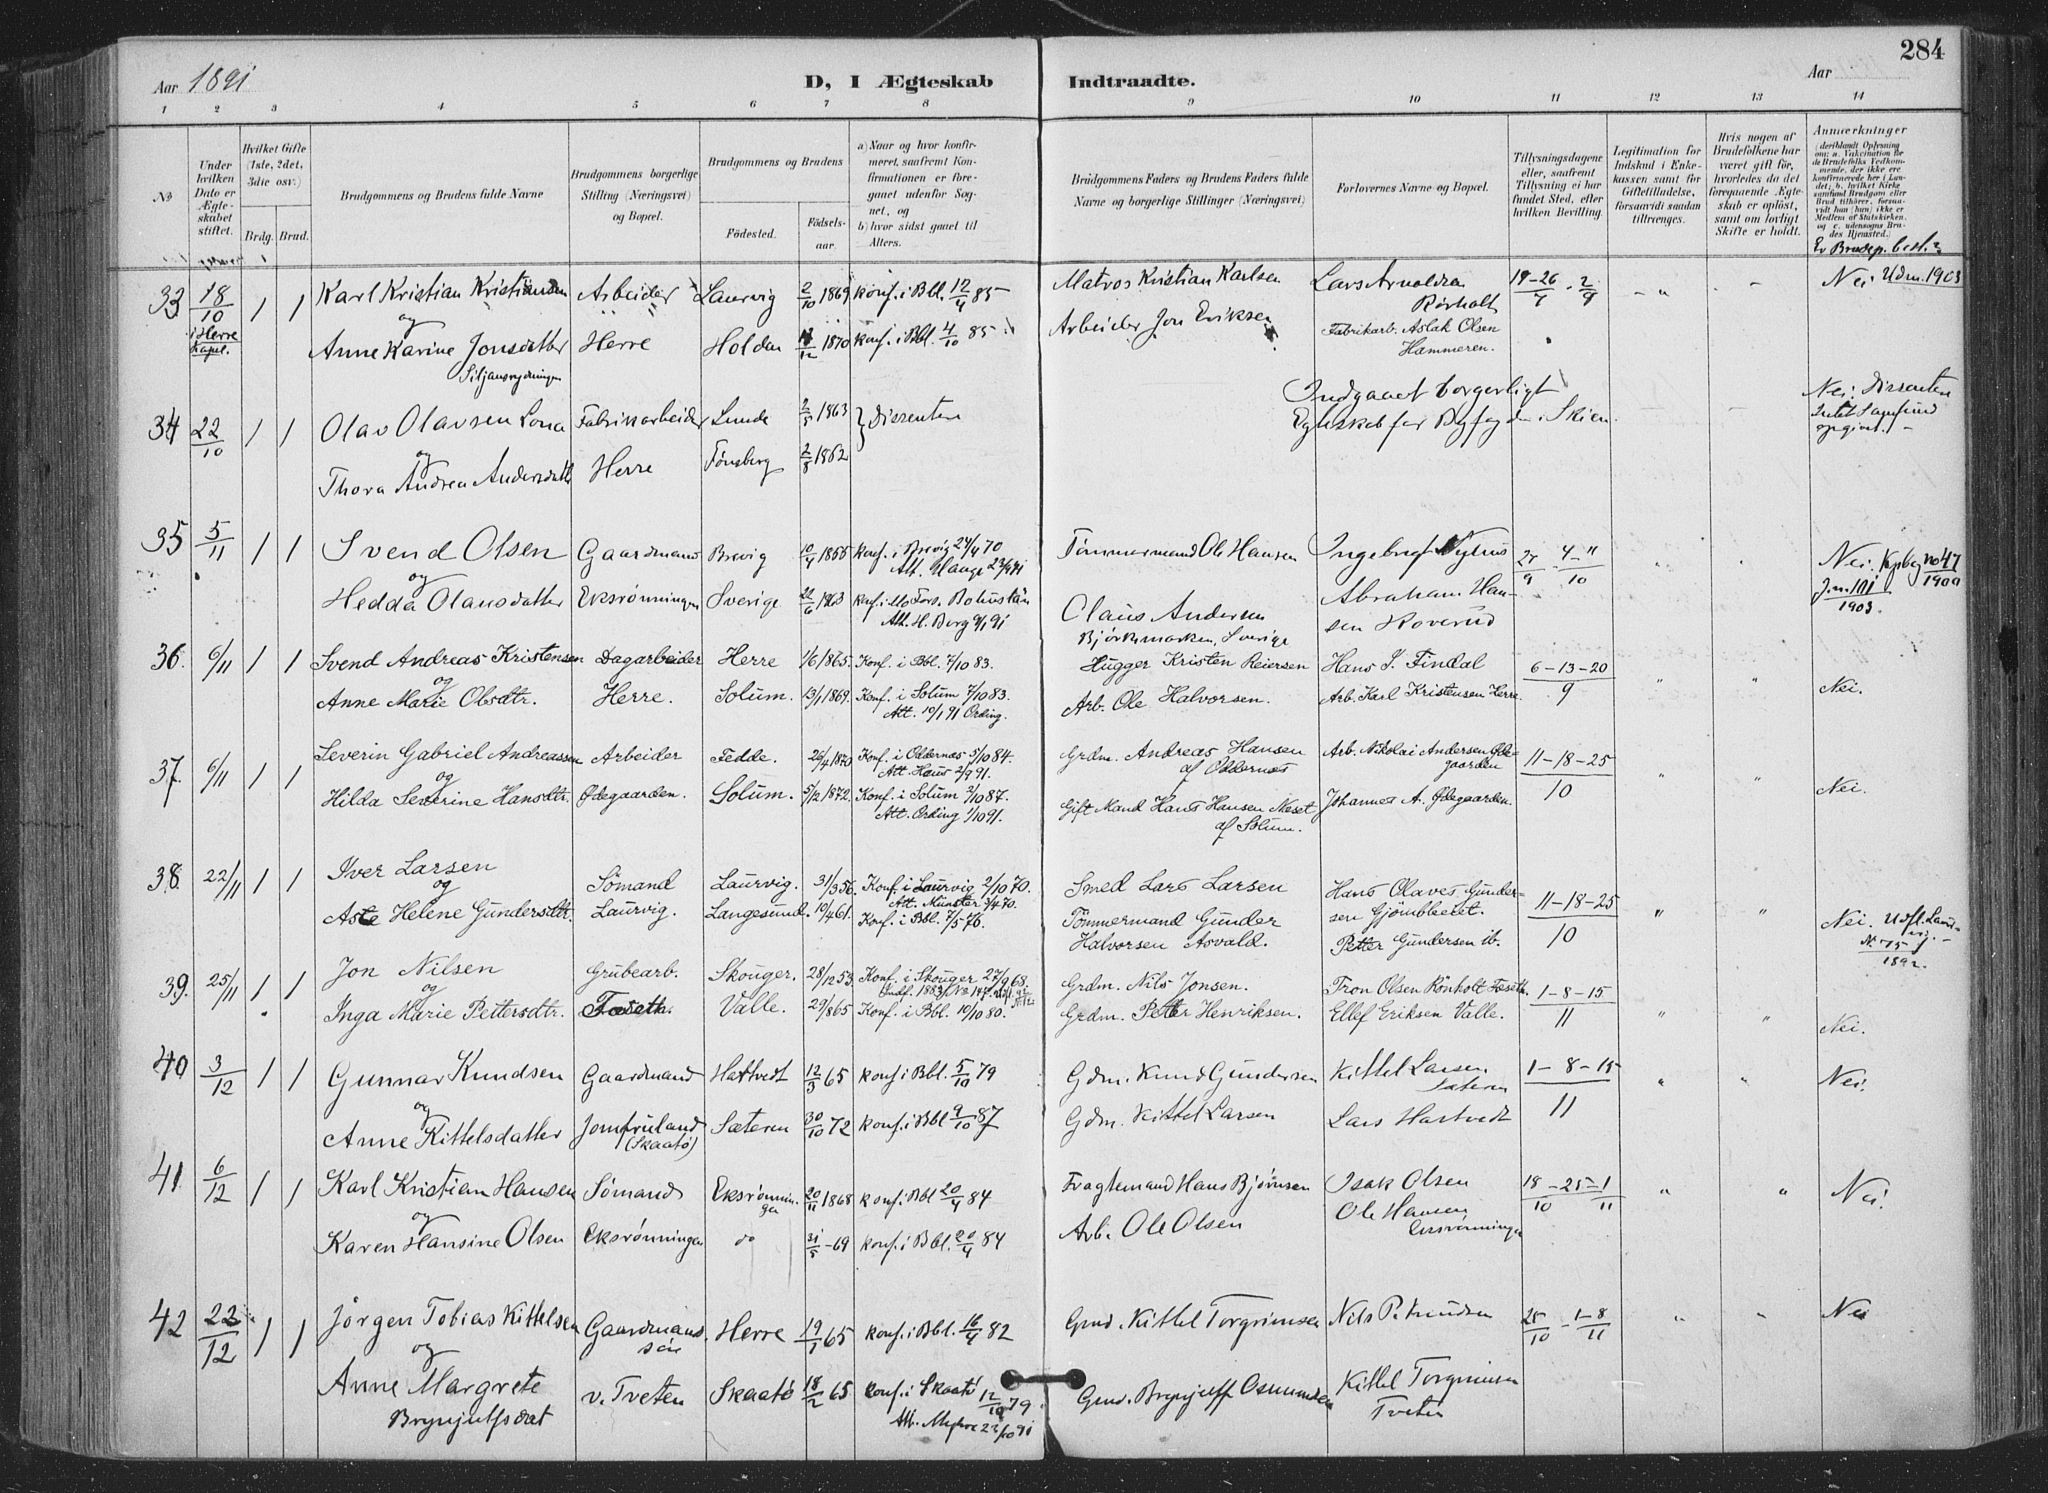 284
Aar 1891
D, I Ægteskab Indtraadte.
Aar
1 2 3 4 5 6 7 8 9 10 11 12 13 14
No
Under hvilken Dato er Ægteskabet stiftet.
Hvilket Gifte (1ste, 2det, 3die osv.)
Brdg. Brud.
Brudgommens og Brudens fulde Navne
Brudgommens borgerlige Stilling (Næringsvei) og Bopæl.
Brudgommens og Brudens
Fødested. Fødselsaar.
a) Naar og hvor konfirmeret, saafremt Konfirmationen er foregaaet udenfor Sognet, og
b) hvor sidst gaaet til Alters.
Brudgommens Faders og Brudens Faders fulde Navne og borgerlige Stillinger (Næringsvei)
Forlovernes Navne og Bopæl.
Tillysningsdagene eller, saafremt Tillysning ei har fundet Sted, efter hvilken Bevilling.
Legitimation for Indskud i Enkekassen samt for Giftetilladelse, forsaavidt saadan tiltrænges.
Hvis nogen af Brudefolkene har været gift før, hvorledes da det foregaaende Ægteskab er opløst, samt om lovligt Skifte er holdt.
Anmærkninger
(deriblandt Oplysning om: a. Vakcination for de Brudefolks Vedkommende, der ikke ere konfirmerede her i Landet; b. hvilket Kirkesamfund Brudgom eller Brud tilhører, forsaavidt han (hun) ikke er Medlem af Statskirken, og c. udensogns Brudes Hjemsted.)
33 18/10 i Herre Kapel. 1 1 Karl Kristian Kristiansen Arbeider Laurvig 2/10 1869 konf. i Bbl. 12/4 85 Matros Kristian Karlsen Lars Arnoldsen Rørholt 19-26/7 - 2/9 Nei Udm. 1903
og
Anne Karine Jonsdatter Herre Holden 12 1870 konf. i Bbl. 4/10 85 Arbeider Jon Eriksen Fabrikarb. Aslak Olsen Hammeren.
Siljansrydningen
34 22/10 1 1 Olav Olavsen Lona Fabrikarbeider Lunde 2/5 1863 } Dissentere Indgaaet borgerligt Egteskab for Byfogden i Skien. Nei. Dissenter Intet Samfund opgivet.
og
Thora Andrea Andersdatter Herre Tønsberg 2/8 1862
35 5/11 1 1 Svend Olsen Gaardmand Brevig 10/4 1855 konf. i Brevig 24/4 70 Tømmermand Ole Hansen 27/9 - 4-11/10 Nei.
og
Hedda Olausdatter Eksrønningen Sverige 22/6 1863 Bohuslän Att. H. Borg 9/1 91 Olaus Andersen Bjørkemarken, Sverige Abraham Hansen Roverud
36. 6/11 1 1 Svend Andreas Kristensen Dagarbeider Herre 1/6 1865. Konf. i Bbl. 7/10 83. Hugger Kristen Reiersen Hans J. Findal 6-13-20/9 Nei.
og
Anne Marie Olsdtr. Herre. Solum. 13/1 1869. Konf. i Solum 7/10 83. Att. 10/1 91 Ording. Arb. Ole Halvorsen. Arb. Karl Kristensen Herre
37. 6/11 1 1 Severin Gabriel Andreassen Arbeider Fedde. 26/4 1870 Konf. i Oddernæs 5/10 84. Att. Haus 2/9 91. Grdm. Andreas Hansen af Oddernæs Arb. Nikolai Andersen Ødegaarden 11-18-25/10 Nei.
og
Hilda Severine Hansdtr. Ødegaarden. Solum. 5/12 1872. Konf. i Solum 2/10 87. Att. Ording 1/10 91. Gift Mand Hans Hansen Næset af Solum. Johannes A. Ødegaarden.
38. 22/11 1 1 Iver Larsen Sømand Laurvig. 31/3 56. Konf. i Laurvig 2/10 70. Att. Münster 3/4 70. Smed Lars Larsen Hans Olaves Gundersen 11-18-25/10 Nei.
og
Aste Helene Gundersdtr. Laurvig. Langesund. 10/4 61. Konf. i Bbl. 7/5 76. Tømmermand Gunder Halvorsen Asvald. Petter Gundersen ib.
39. 25/11 1 1 Jon Nilsen Grubearb. Skouger. 28/12 53. Konf. i Skouger 27/9 68. Grdm. Nils Jonsen. Tron Olsen Rönholt Tøseth. 1-8-15/11 Nei.
og
Inga Marie Pettersdtr. Tøseth. Valle. 29/8 65 Konf. i Bbl. 10/10 80. Grdm. Petter Henriksen. Ellef Eriksen Valle.
40 3/12 1 1 Gunnar Knudsen Gaardmand Hattvedt 12/3 65 konf i Bbl. 5/10 79 Gdm. Knud Gundersen Kittel Larsen Sæteren 1-8-15/11 Nei.
og
Anne Kittelsdatter Jomfruland (Skaatø) Sæteren 30/10 72 konf. i Bbl 9/10 87 Gdm. Kittel Larsen Lars Hartvedt
41 6/12 1 1 Karl Kristian Hansen Sømand Eksrønningen 20/11 1868 konf. i Bbl 20/4 84 Fragtemand Hans Bjørnsen Isak Olsen 18-25/10-1/11 Nei.
og
Karen Hansine Olsen Eksrønningen do 31/5-69 konf. i Bbl. 20/4 84 Arb. Ole Olsen Ole Hansen Eksrønningen
42 22/12 1 1 Jørgen Tobias Kittelsen Gaardmandssøn Herre 19/1 65 konf. i Bbl. 16/4 82 Gmd. Kittel Torgrimsen Nils P. Knudsen 25/10 - 1-8/11 Nei
og
Anne Margrete Brynjulfsdat v. Tveten Skaatø 18/2 65 konf. i Skaatø 12/10 79 Gmd. Brynjulff Osmundsen Kittel Torgrimsen Tveten